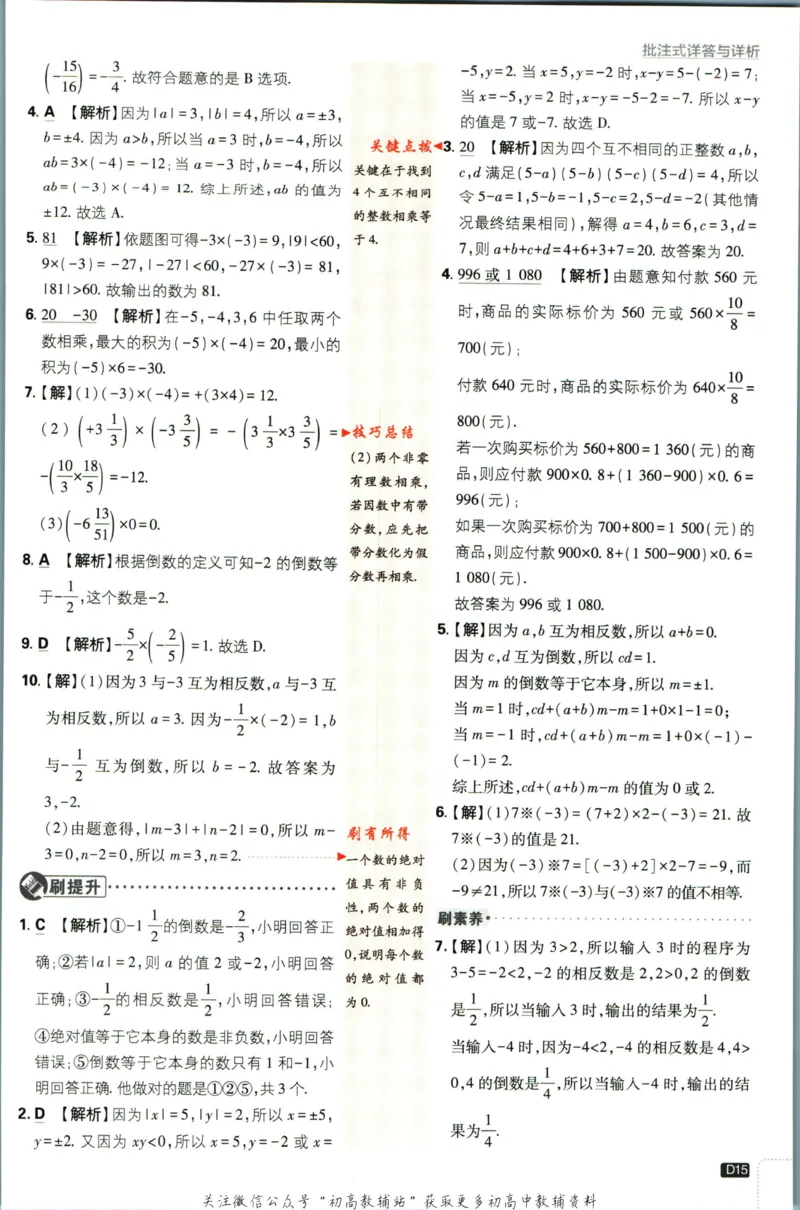 批注式详答与详析
(-15/16)=-3/4. 故符合题意的是 B 选项.
4. A 【解析】因为|a|=3,|b|=4,所以 a=±3,
b=±4. 因为 a>b,所以当 a=3 时,b=-4,所以
ab=3×(-4)=-12;当 a=-3 时,b=-4,所以
ab=(-3)×(-4)=12. 综上所述,ab 的值为
±12. 故选 A.
5. 81 【解析】依题图可得-3×(-3)=9,|9|<60,
9×(-3)=-27,|-27|<60,-27×(-3)=81,
|81|>60. 故输出的数为 81.
6. 20 -30 【解析】在-5,-4,3,6 中任取两个
数相乘,最大的积为(-5)×(-4)=20,最小的
积为(-5)×6=-30.
7. 【解】(1)(-3)×(-4)=+(3×4)=12.
(2)(+3 1/3)×(-3 3/5)=-(3 1/3×3 3/5)=
-(10/3×18/5)=-12.
(3)(-6 13/51)×0=0.
8. A 【解析】根据倒数的定义可知-2 的倒数等
于-1/2,这个数是-2.
9. D 【解析】-5/2×(-2/5)=1. 故选 D.
10. 【解】(1)因为 3 与-3 互为相反数,a 与-3 互
为相反数,所以 a=3. 因为-1/2×(-2)=1,b
与-1/2 互为倒数,所以 b=-2. 故答案为
3,-2.
(2)由题意得,|m-3|+|n-2|=0,所以 m-
3=0,n-2=0,所以 m=3,n=2.
刷提升
1. C 【解析】①-1 1/2的倒数是-2/3,小明回答正
确;②若|a|=2,则 a 的值 2 或-2,小明回答
正确;③-1/2的相反数是1/2,小明回答错误;
④绝对值等于它本身的数是非负数,小明回答
错误;⑤倒数等于它本身的数只有 1 和-1,小
明回答正确. 他做对的题是①②⑤,共 3 个.
2. D 【解析】因为|x|=5,|y|=2,所以 x=±5,
y=±2. 又因为 xy<0,所以 x=5,y=-2 或 x=
关键点拨
关键在于找到
4 个互不相同
的整数相乘等
于 4.
技巧总结
(2)两个非零
有理数相乘,
若因数中有带
分数,应先把
带分数化为假
分数再相乘.
刷有所得
一个数的绝对
值具有非负
性,两个数的
绝对值相加得
0,说明每个数
的绝对值都
为 0.
-5,y=2. 当 x=5,y=-2 时,x-y=5-(-2)=7;
当 x=-5,y=2 时,x-y=-5-2=-7. 所以 x-y
的值是 7 或-7. 故选 D.
3. 20 【解析】因为四个互不相同的正整数 a,b,
c,d 满足(5-a)(5-b)(5-c)(5-d)=4,所以
令 5-a=1,5-b=-1,5-c=2,5-d=-2(其他情
况最终结果相同),解得 a=4,b=6,c=3,d=
7,则 a+b+c+d=4+6+3+7=20. 故答案为 20.
4. 996 或 1 080 【解析】由题意知付款 560 元
时,商品的实际标价为 560 元或 560×10/8=
700(元);
付款 640 元时,商品的实际标价为 640×10/8=
800(元).
若一次购买标价为 560+800=1 360(元)的商
品,则应付款 900×0. 8+(1 360-900)×0. 6=
996(元);
如果一次购买标价为 700+800=1 500(元)的
商品,则应付款 900×0. 8+(1 500-900)×0. 6=
1 080(元).
故答案为 996 或 1 080.
5. 【解】因为 a,b 互为相反数,所以 a+b=0.
因为 c,d 互为倒数,所以 cd=1.
因为 m 的倒数等于它本身,所以 m=±1.
当 m=1 时,cd+(a+b)m-m=1+0×1-1=0;
当 m=-1 时,cd+(a+b)m-m=1+0×(-1)-
(-1)=2.
综上所述,cd+(a+b)m-m 的值为 0 或 2.
6. 【解】(1)7※(-3)=(7+2)×2-(-3)=21. 故
7※(-3)的值是 21.
(2)因为(-3)※7=[(-3)+2]×2-7=-9,而
-9≠21,所以 7※(-3)与(-3)※7 的值不相等.
刷素养
7. 【解】(1)因为 3>2,所以输入 3 时的程序为
3-5=-2<2,-2 的相反数是 2,2>0,2 的倒数
是1/2,所以当输入 3 时,输出的结果为1/2.
当输入-4 时,因为-4<2,-4 的相反数是 4,4>
0,4 的倒数是1/4,所以当输入-4 时,输出的结
果为1/4.
D15
关注微信公众号“初高教辅站”获取更多初高中教辅资料